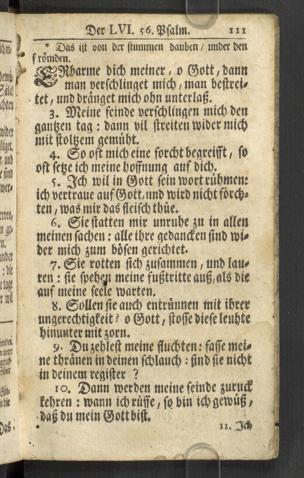 Der LVI. 56. Psalm. 111
* Das ist von der stummen dauben / under den
frömden.
ERbarme dich meiner, o Gott, dann
man verschlinget mich, man bestrei-
tet, und dränget mich ohn unterlaß.
3. Meine feinde verschlingen mich den
gantzen tag: dann vil streiten wider mich
mit stoltzem gemüht.
4. So oft mich eine forcht begreifft, so
oft setze ich meine hoffnung auf dich.
5. Ich wil in Gott sein wort rühmen:
ich vertraue auf Gott, und wird nicht förch-
ten, was mir das fleisch thüe.
6. Sie statten mir unruhe zu in allen
meinen sachen: alle ihre gedancken sind wi-
der mich zum bösen gerichtet.
7. Sie rotten sich zusammen, und lau-
ren: sie spehen meine fußtritte auß, als die
auf meine seele warten.
8. Sollen sie auch entrünnen mit ihrer
ungerechtigkeit? o Gott, stosse diese leuhte
hinunter mit zorn.
9. Du zehlest meine fluchten: fasse mei-
ne thränen in deinen schlauch: sind sie nicht
in deinem register?
10. Dann werden meine feinde zuruck
kehren: wann ich rüffe, so bin ich gewüß,
daß du mein Gott bist.
11. Ich